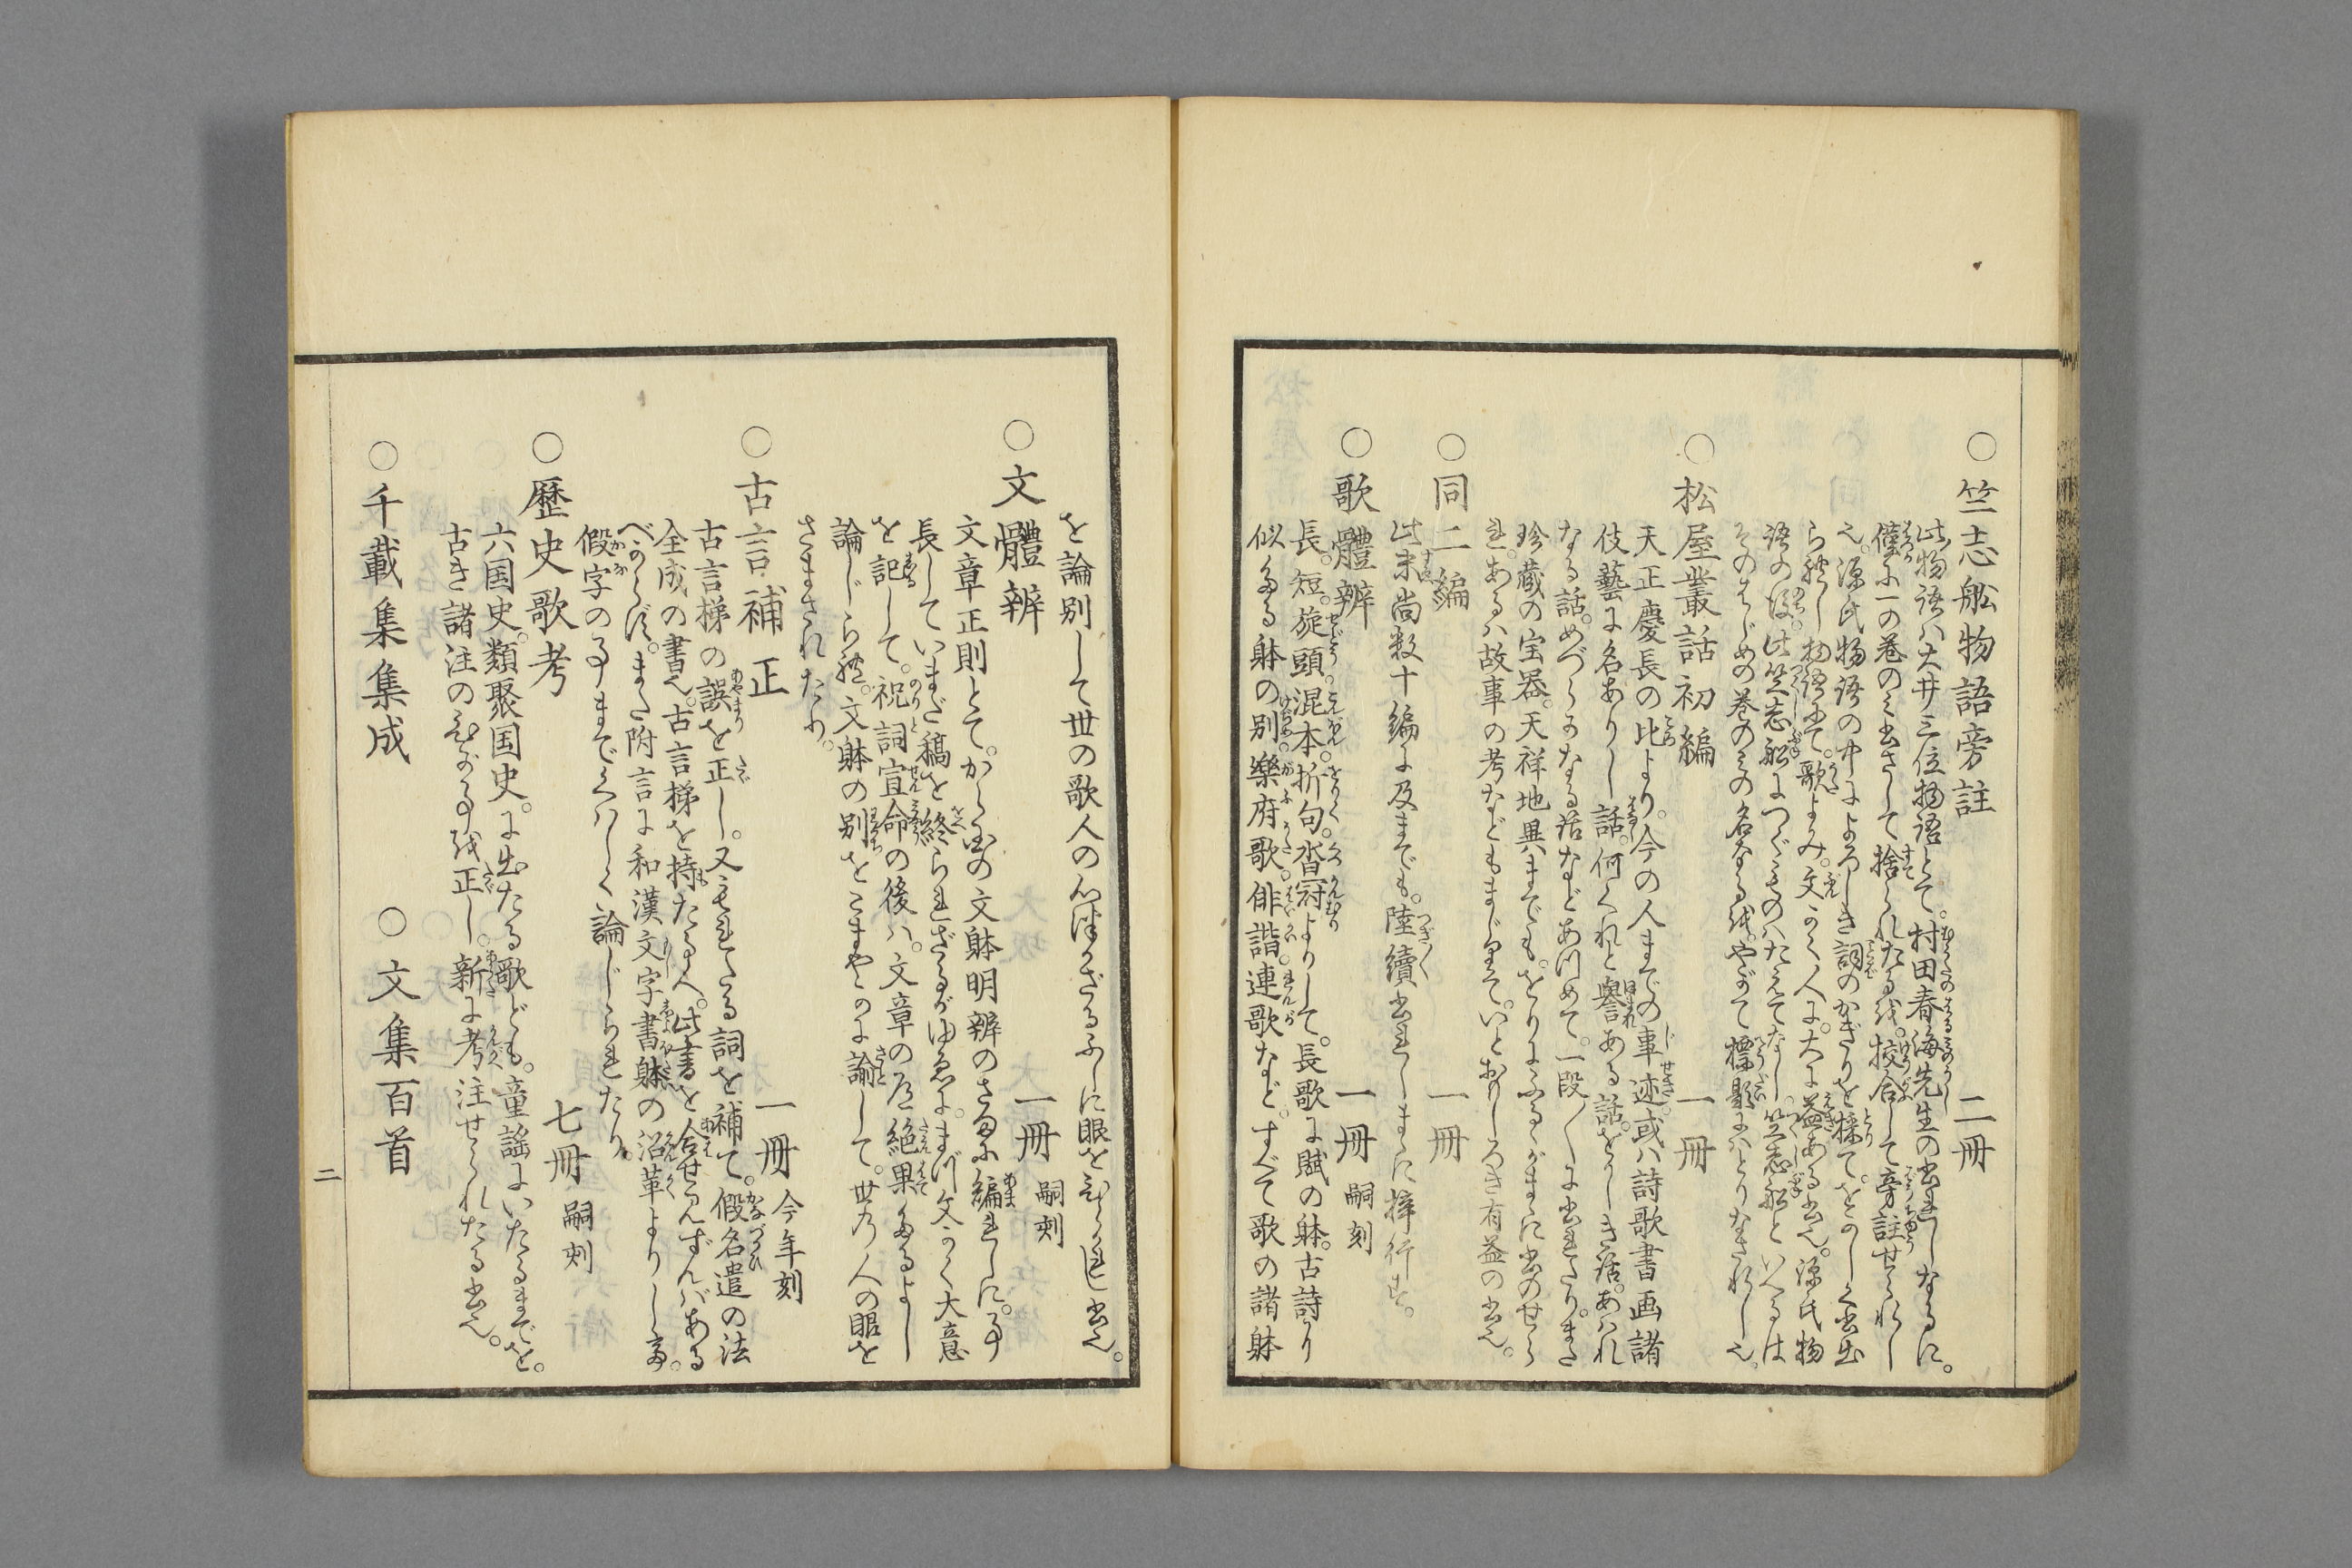 ○竺志舩物語旁註　二冊
此物語ハ大井三位物語とて。村田春海先生の出されしなるに。
僅に一の巻のミ出さして捨られたるを。挍合して旁註せられし
也。源氏物語の中によろしき詞のかぎりを採て。をかしく出
られし物語にて。歌よみ。文かく人に。大に益ある書也。源氏物
語の後。此竺志舩につぐものハたえてなし。竺志舩といへるは
そのはじめの巻のミの名なるを。やがて標題にハとりなされし也。
○松屋叢話初編　一冊
天正慶長の比より。今の人までの事迹。或ハ詩歌書画諸
伎藝に名ありし話。何くれと譽ある話。をかしき話。あハれ
なる話。めづらかなる話などあつめて。一段〱に出されたり。また
珍蔵の宝器。天祥地異までも。とりにふるゝまゝに出のせら
れ。あるハ故事の考などもまじりて。いとおもしろき有益の書也。
○同二編　一冊
此末尚数十編に及までも。陸續出しまゝに梓行す。
○歌體辨　一冊　嗣刻
長。短。旋頭。混本。折句。沓冠よりして。長歌に賦の躰。古詩に
似たる躰の別。樂府歌。俳諧。連歌など。すべて歌の諸躰
を論別して世の歌人の心つかざるふしに眼をひらかれし書也。
○文體辨　一冊　嗣刻
文章正則とて。から国の文躰明辨のさまに編れしに。事
長していまだ稿を終られざるがゆゑに。まづ文かく大意
を記して。祝詞宣命の後ハ。文章の道絶果たるよし
論じられ。文躰の別をこまやかに諭して。世の人の眼を
さまされたり。
○古言補正　一冊　今年刻
古言梯の誤を正し。又もれたる詞を補て。假名遣の法
全成の書也。古言梯を持たる人。此書を合せずんバある
べからず。また附言に和漢文字書躰の沿革よりして。
假字の事までくハしく論じられたり。
○歴史歌考　七冊　嗣刻
六国史。類聚国史。に出たる歌ども。童謡にいたるまでを。
古き諸注のひがことを正し。新に考注せられたる書也。
○千載集集成　○文集百首
二